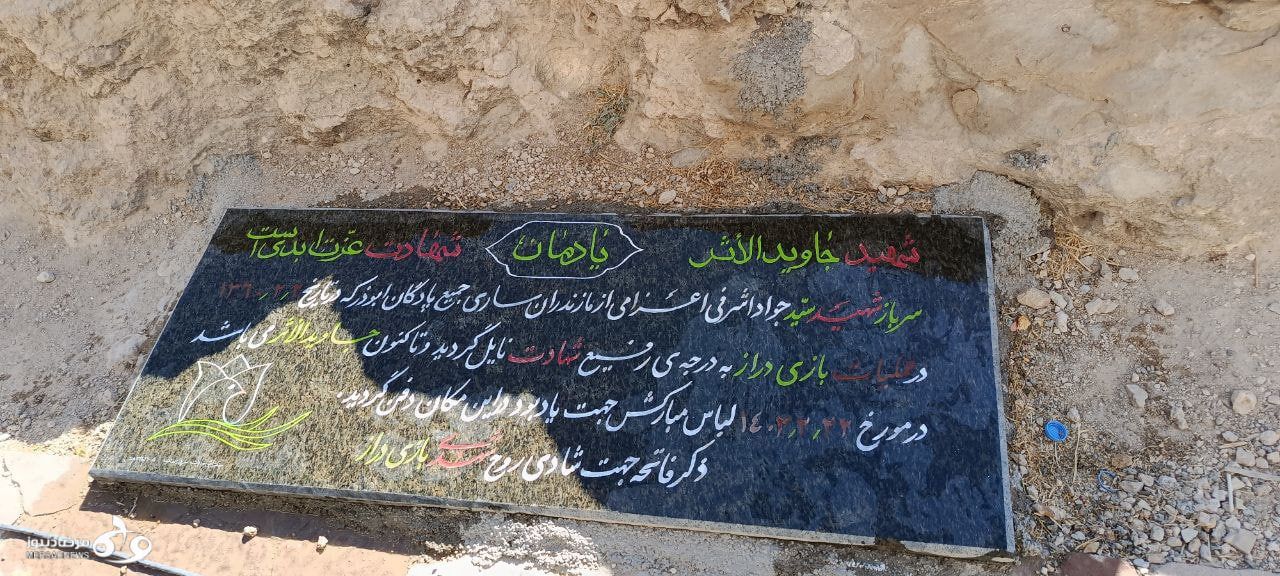 شهید جاوید الأثر یادمان شهادت عزت ابدی است
سرباز شهید سید جواد اشرفی اعزامی از مازندران ساری جمیع پادگان ابوذر که در تاریخ
در عملیات بازی دراز به درجه ی رفیع شهادت نایل گردید و تاکنون جاوید الاثر می باشد
در مورخ ۱۴۰۲٫۲٫۲۲ لباس مبارکش جهت یادبود در این مکان دفن گردید.
ذکر فاتحه جهت شادی روح شهدای بازی دراز
مرصاد نیوز
MERSADNEWS